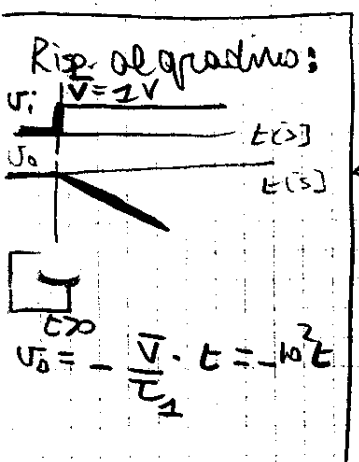 Risp. al gradino:
vi V̅=1V
t[s]
vo
t[s]
t>0
vo = - V̅/τ1 · t = -10²t